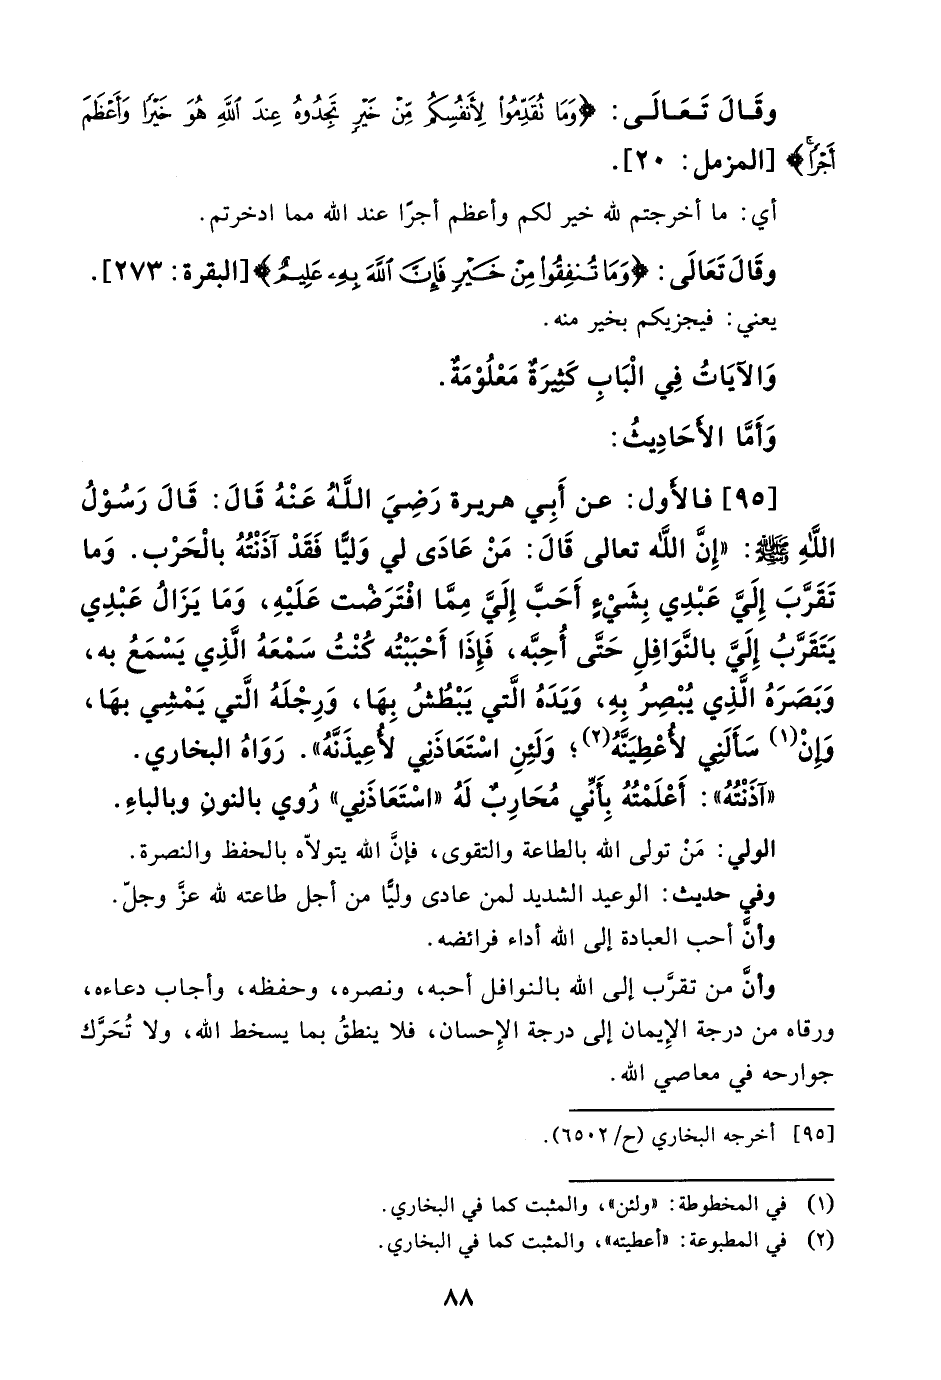 وقَـالَ تَـعَـالَـى: ﴿وَمَا نُقَدِّمُوا۟ لِأَنفُسِكُم مِّنْ خَيْرٍ تَجِدُوهُ عِندَ ٱللَّهِ هُوَ خَيْرًا وَأَعْظَمَ
أَجْرًا﴾ [المزمل: ٢٠].
أي: ما أخرجتم لله خير لكم وأعظم أجرًا عند الله مما ادخرتم.
وقَالَ تَعَالَى: ﴿وَمَا تُنفِقُوا۟ مِنْ خَيْرٍ فَإِنَّ ٱللَّهَ بِهِۦ عَلِيمٌ﴾[البقرة: ٢٧٣].
يعني: فيجزيكم بخير منه.
وَالآيَاتُ فِي الْبَابِ كَثِيرَةٌ مَعْلُومَةٌ.
وَأَمَّا الأَحَادِيثُ:
[٩٥] فالأول: عن أَبِي هريرة رَضِيَ اللَّهُ عَنْهُ قَالَ: قَالَ رَسُوْلُ
اللَّهِ ﷺ: «إِنَّ اللَّه تعالى قَالَ: مَنْ عَادَى لي وَليًّا فَقَدْ آذَنْتُهُ بالْحَرْب. وَما
تَقَرَّبَ إِلَيَّ عَبْدِي بِشَيْءٍ أَحَبَّ إِلَيَّ مِمَّا افْتَرَضْت عَلَيْهِ، وَمَا يَزَالُ عَبْدِي
يَتَقَرَّبُ إِلَيَّ بالنَّوَافِلِ حَتَّى أُحِبَّه، فَإِذَا أَحْبَبْتُه كُنْتُ سَمْعَهُ الَّذِي يَسْمَعُ به،
وَبَصَرَهُ الَّذِي يُبْصِرُ بِهِ، وَيَدَهُ الَّتي يَبْطُشُ بِهَا، وَرِجْلَهُ الَّتي يَمْشِي بهَا،
وَإِنْ(١) سَأَلَنِي لأُعْطِيَنَّهُ(٢)؛ وَلَئِنِ اسْتَعَاذَنِي لأُعِيذَنَّهُ». رَوَاهُ البخاري.
«آذَنْتُهُ»: أَعْلَمْتُهُ بِأَنِّي مُحَارِبٌ لَهُ «اسْتَعَاذَنِي» رُوي بالنونِ وبالباءِ.
الولي: مَنْ تولى الله بالطاعة والتقوى، فإنَّ الله يتولاّه بالحفظ والنصرة.
وفي حديث: الوعيد الشديد لمن عادى وليًّا من أجل طاعته لله عزَّ وجلّ.
وأنَّ أحب العبادة إلى الله أداء فرائضه.
وأنَّ من تقرَّب إلى الله بالنوافل أحبه، ونصره، وحفظه، وأجاب دعاءه،
ورقاه من درجة الإِيمان إلى درجة الإِحسان، فلا ينطقُ بما يسخط الله، ولا تُحَرَّك
جوارحه في معاصي الله.
[٩٥] أخرجه البخاري (ح/٦٥٠٢).
(١) في المخطوطة: «ولئن»، والمثبت كما في البخاري.
(٢) في المطبوعة: «أعطيته»، والمثبت كما في البخاري.
٨٨